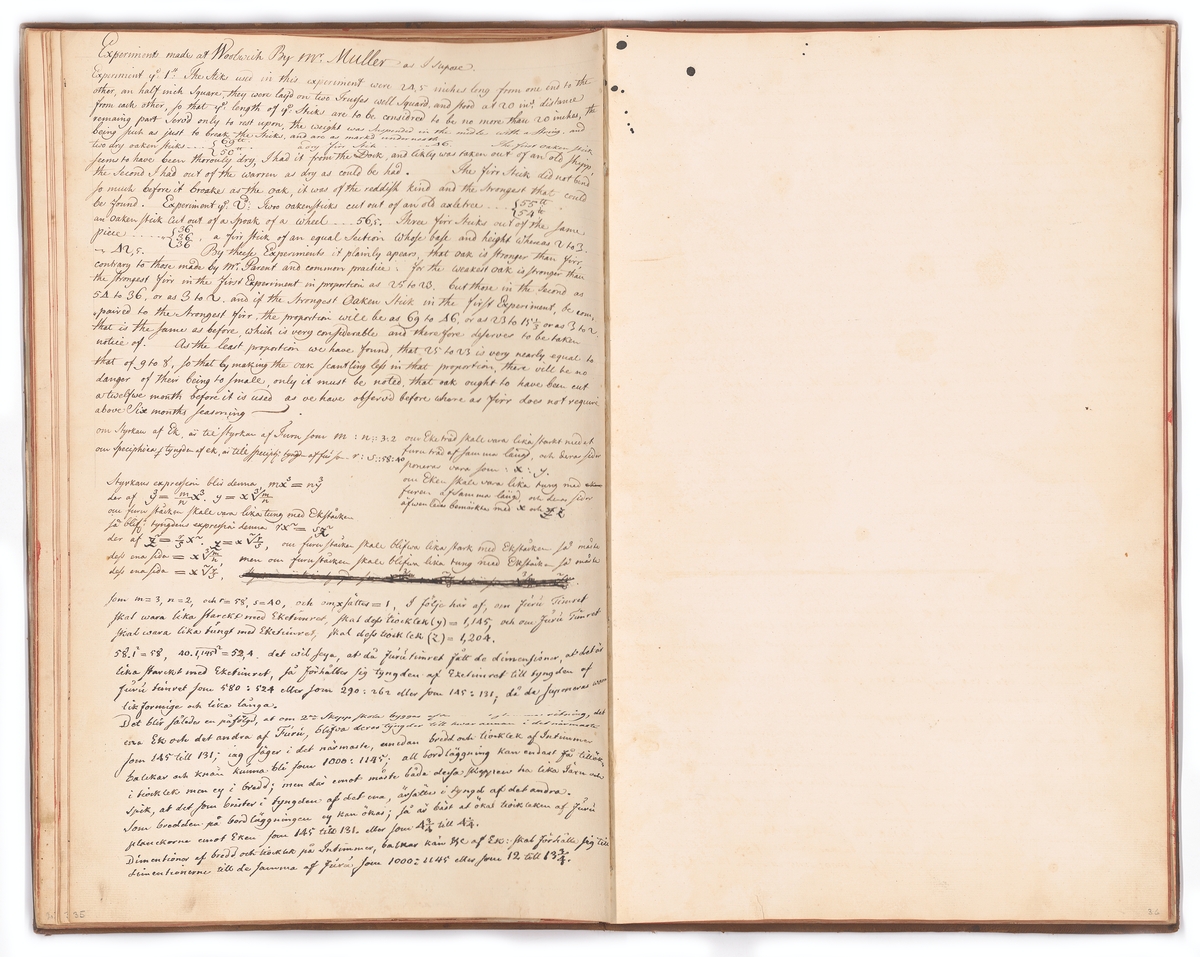 Experiments made at Woolwich By Mr. Muller as I supose.
Experiment ye. 1st. The Stiks used in this experiment were 24,5 inches long from one end to the
other, an half inch Square, they were layd on two Trusses well Squard, and stood at 20 ins. distance
from each other, so that ye. length of ye. Stiks are to be considered to be no more than 20 inches, the
remaing part Servd only to rest upon, the weight was suspended in the midle with a string, and
being such as just to break the Stiks, and are as markd underneath
two dry oaken stiks {69 lb 50 lb a dry Firr Stik 46. The first oaken stik
seems to have been thorouly dry, I had it from the Dock, and likly was taken out of an old Shipp,
the Second I had out of the warren as dry as could be had. The firr Stick did not bend
so much before it breakes as the oak, it was of the reddish kind and the Strongest that could
be found. Experiment ye. 2d: Two oaken stiks cut out of an old axletree {55 lb 54 lb
an oaken stick cut out of a spoak of a wheel 56,5. Three firr Stiks out of the same
piece {36 36 36, a firr stick of an equal Section whose base and height where as 2 to 3
42,5. By these Experiments it plainly apears, that oak is stronger than firr
contrary to those made by Mr. Parent and common practice: for the weakest oak is stronger than
the strongest firr in the First Experiment in proportion as 25 to 23. but those in the Second as
54 to 36, or as 3 to 2. and if the Strongest Oaken Stick in the first Experiment, be com-
-paired to the Strongest firr, the proportion will be as 69 to 46, or as 23 to 15 1/3 or as 3 to 2
that is the same as before, which is very considerable and therefore deserves to be taken
notice of. As the least proportion we have found, that 25 to 23 is very nearly equal to
that of 9 to 8, so that by making the oak scantling less in that proportion, there will be no
danger of their being to small, only it must be noted, that oak ought to have been cut
a twelfwe month before it is used as we have observd before where as Firr does not require
above Six months seasoning
om Styrkan af Ek, är til styrkan af Furu som m : n :: 3 : 2
om specifika tyngden af ek, är till specif: tyngd af fur som r : s :: 58 : 40
om Eketräd skale vara lika starkt med et
furu träd af samma längd, och deras sidor
poneras vara som : x : y.
om Eken skale vara lika tung med
furen af samma längd, och deras sidor
äfwenledes bemärktes med x och z
Styrkans expression blir denna, mx³ = ny³
der af y³ = m/n x³. y = x ∛m/n
om furu stäcken skale vara lika tung med Ekstäcken
så blifr tyngdens expression denna rx² = sz²
der af z² = r/s x². z = x √r/s, om furustäcken skale blifwa lika stark med Ekstäcken så måste
dess ena sida = x ∛m/n, men om furustäcken skale blifwa lika tung med Ekstäcken så måste
dess ena sida = x √r/s,
som m = 3, n = 2, och r = 58, s = 40, och om x sättes = 1, I följe här af, om Furu Timret
skal wara lika starckt med Eketimret, skal dess tiocklek (y) = 1,145, och om Furu Timret
skal wara lika tungt med Eketimret, skal dess tiocklek (z) = 1,204.
58.1² = 58, 40.1,145² = 52,4. det wil seya, at då Furu timret fått de dimensioner, at det är
lika starckt med Eketimret, så förhåller sig tyngden af Eketimret till tyngden af
furu timret som 580 : 524 eller som 290 : 262 eller som 145 : 131, då de suponeras wara
likformige och lika långa.
Det blir således en påföljd, at om 2ne Skepp skola byggas ritning, det
ena Ek och det andra af Furu, blifwa deras tyngder till hwar annan i det närmaste
som 145 till 131; iag säger i det närmaste, emedan bredd och tiocklek af Intimmer
balckar och knän kunna bli som 1000 : 1145; all bordläggning kan endast få tillökt
i tiocklek men ey i bredd; men där emot måste båda dessa skeppen ha lika Järn och
spik, at det som brister i tyngden af det ena, ärsättes i tyngd af det andra.
Som bredden på bordläggningen ey kan ökas; så är bäst at ökas tiockleken af Furu
planckorna emot Eken som 145 till 131. eller som 4 3/4 till 4 1/4.
Dimentioner af bredd och tiocklek på Intimmer, balkar kän &c af Ek: skal förhålla sig till
dimentionerne till de samma af Furu, som 1000 : 1145 eller som 12 till 13 3/4.
35
36